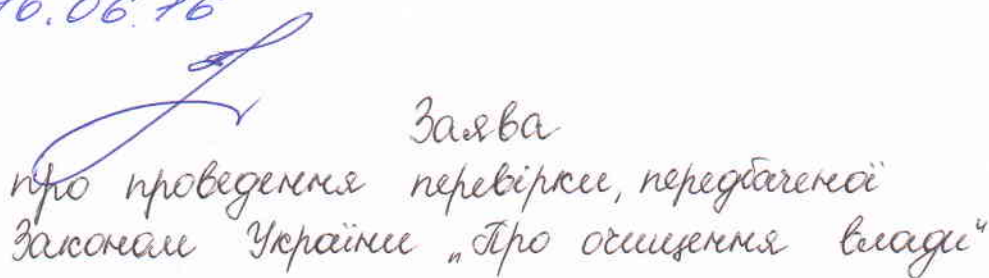 16.06.16
Заява
про проведення перевірки, передбаченої
Законом України „Про очищення влади"